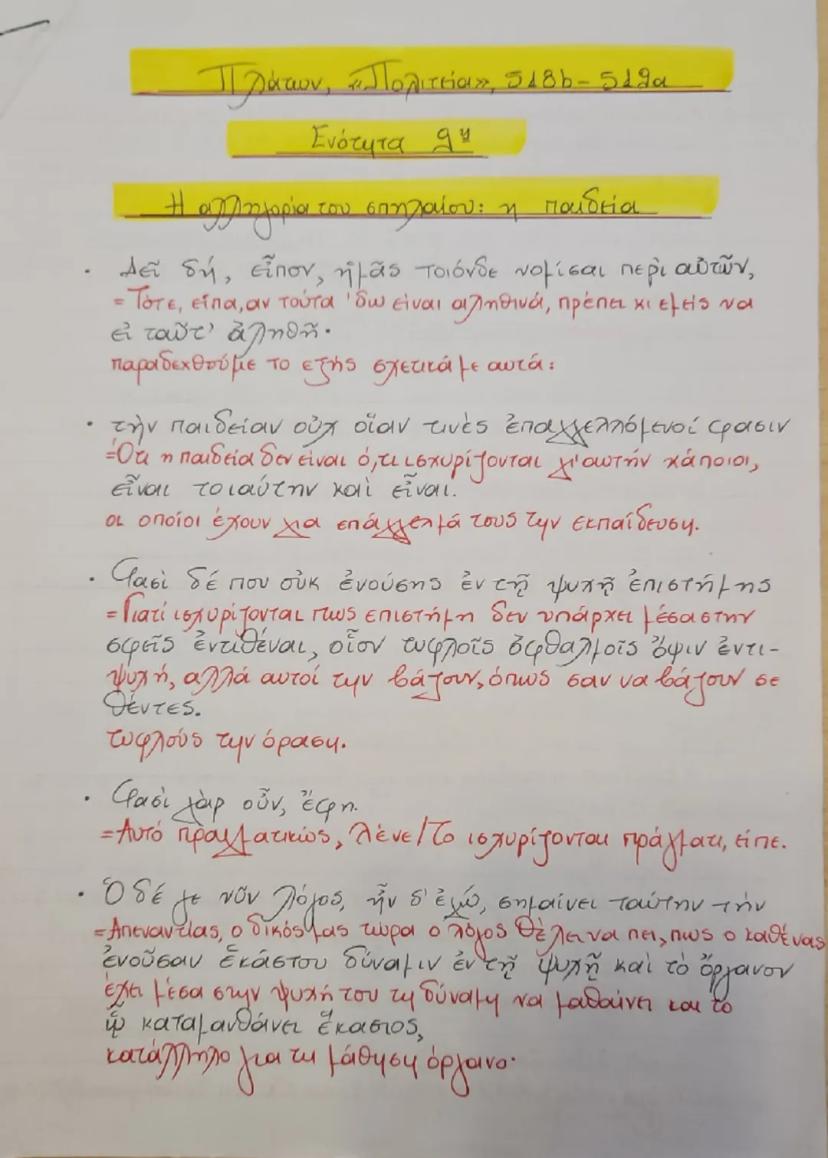 Πλάτων, «Πολιτεία», 518b-519a
Ενότητα 9η
Η αλληγορία του σπηλαίου: η παιδεία
· Δεῖ δή, εἶπον, ἡμᾶς τοιόνδε νομίσαι περὶ αὐτῶν,
= Τότε, είπα, αν τούτα 'δω είναι αληθινά, πρέπει κι εμείς να
εἰ ταῦτ' ἀληθῆ·
παραδεχθούμε το εξής σχετικά με αυτά:
· τὴν παιδείαν οὐχ οἵαν τινὲς ἐπαγγελλόμενοί φασιν
= Ότι η παιδεία δεν είναι ό,τι ισχυρίζονται γι'αυτήν κάποιοι,
εἶναι τοιαύτην καὶ εἶναι.
οι οποίοι έχουν για επάγγελμά τους την εκπαίδευση.
· Φασὶ δέ που οὐκ ἐνούσης ἐν τῇ ψυχῇ ἐπιστήμης
= Γιατί ισχυρίζονται πως επιστήμη δεν υπάρχει μέσα στην
σφεῖς ἐντιθέναι, οἷον τυφλοῖς ὀφθαλμοῖς ὄψιν ἐντι-
ψυχή, αλλά αυτοί την βάζουν, όπως σαν να βάζουν σε
θέντες.
τυφλούς την όραση.
· Φασὶ γὰρ οὖν, ἔφη.
= Αυτό πραγματικώς, λένε/Το ισχυρίζονται πράγματι, είπε.
· Ὁ δέ γε νῦν λόγος, ἦν δ' ἐγώ, σημαίνει ταύτην τὴν
= Απεναντίας, ο δικός μας τώρα ο λόγος θέλει να πει, πως ο καθένας
ἐνοῦσαν ἑκάστου δύναμιν ἐν τῇ ψυχῇ καὶ τὸ ὄργανον
έχει μέσα στην ψυχή του τη δύναμη να μαθαίνει και το
ᾧ καταμανθάνει ἕκαστος,
κατάλληλο για τη μάθηση όργανο·